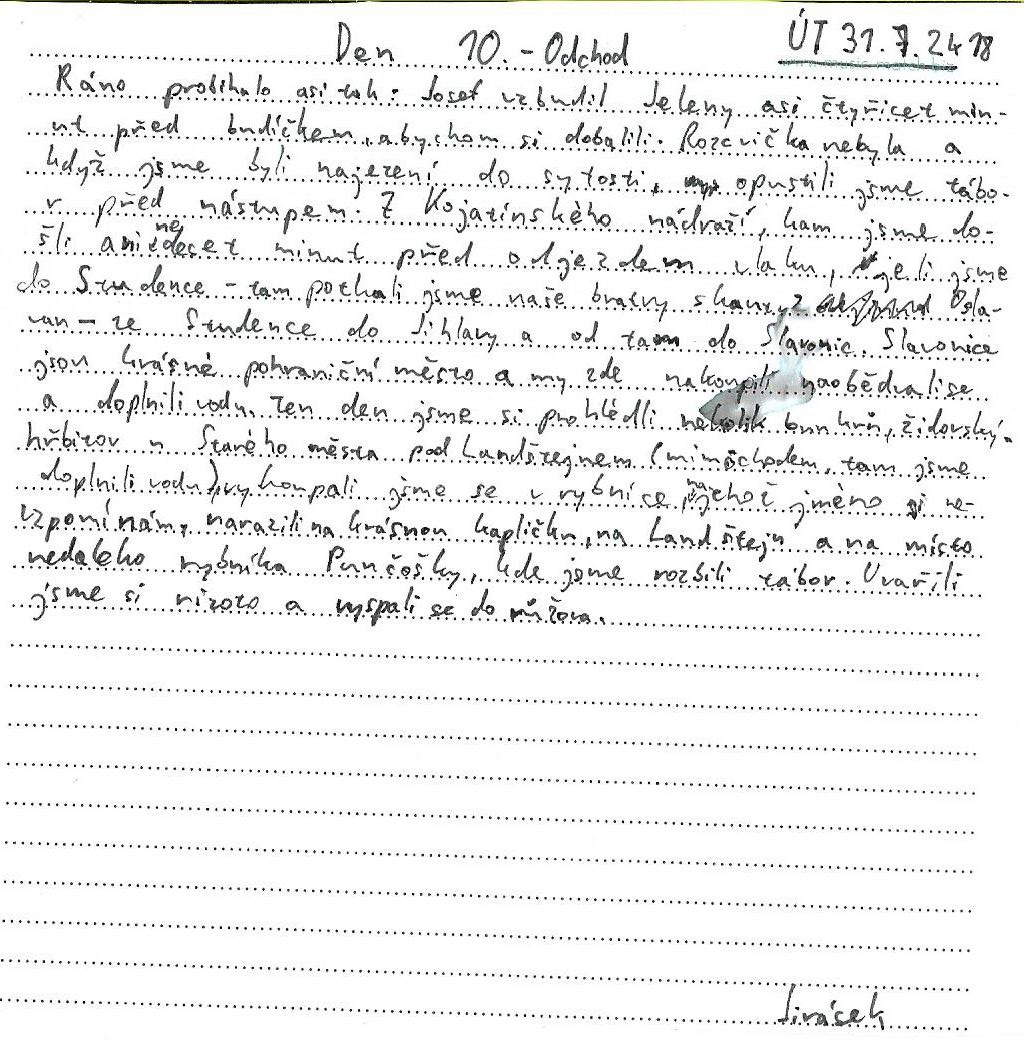 Den 10. - Odchod ÚT 31.7.2418
Ráno probíhalo asi tak: Josef vzbudil Jeleny asi čtyřicet min-
ut před budíčkem, abychom si dobalili. Rozcvička nebyla a
když jsme byli najezeni do sytosti, opustili jsme tábo-
r před nástupem. Z Kojatínského nádraží, kam jsme do-
šli ani ne deset minut před odjezdem vlaku, jeli jsme
do Studence - tam potkali jsme naše bratry skauty z Osla-
van - ze Studence do Jihlavy a od tam do Slavonic. Slavonice
jsou krásné pohraniční město a my zde nakoupili naobědvali se
a doplnili vodu. Ten den jsme si prohlédli několik bunkrů, židovský
hřbitov u Starého města pod Landštejnem (mimochodem, tam jsme
doplnili vodu), vykoupali jsme se v rybníce, na jehož jméno si ne-
vzpomínám, narazili na krásnou kapličku, na Landštejn a na místo
nedaleko rybníka Punčošky, kde jsme rozbili tábor. Uvařili
jsme si rizoto a vyspali se do růžova.
Jirásek